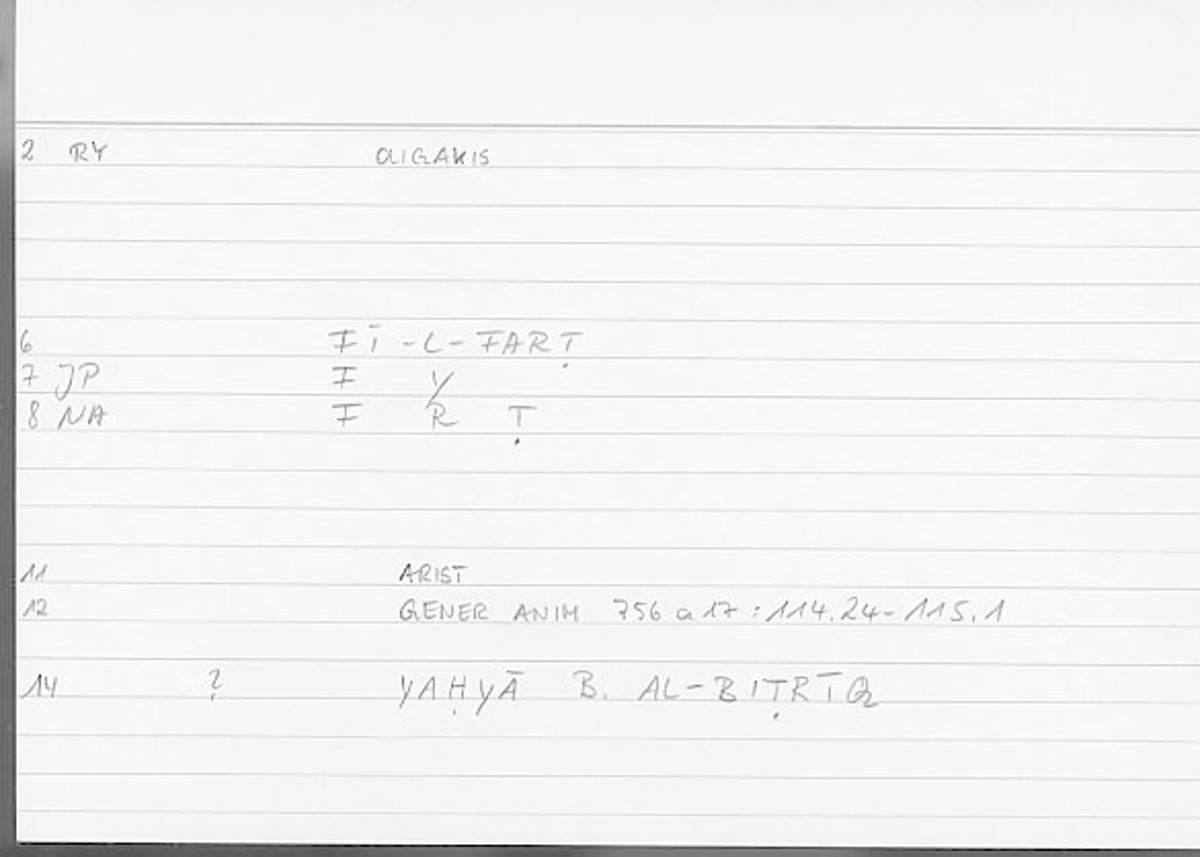 2 RY OLIGAKIS
6 FĪ-L-FARṬ
7 JP F Y
8 NA F R Ṭ
11 ARIST
12 GENER ANIM 756 a 17 : 114.24-115.1
14 ? YAḤYĀ B. AL-BIṬRĪQ